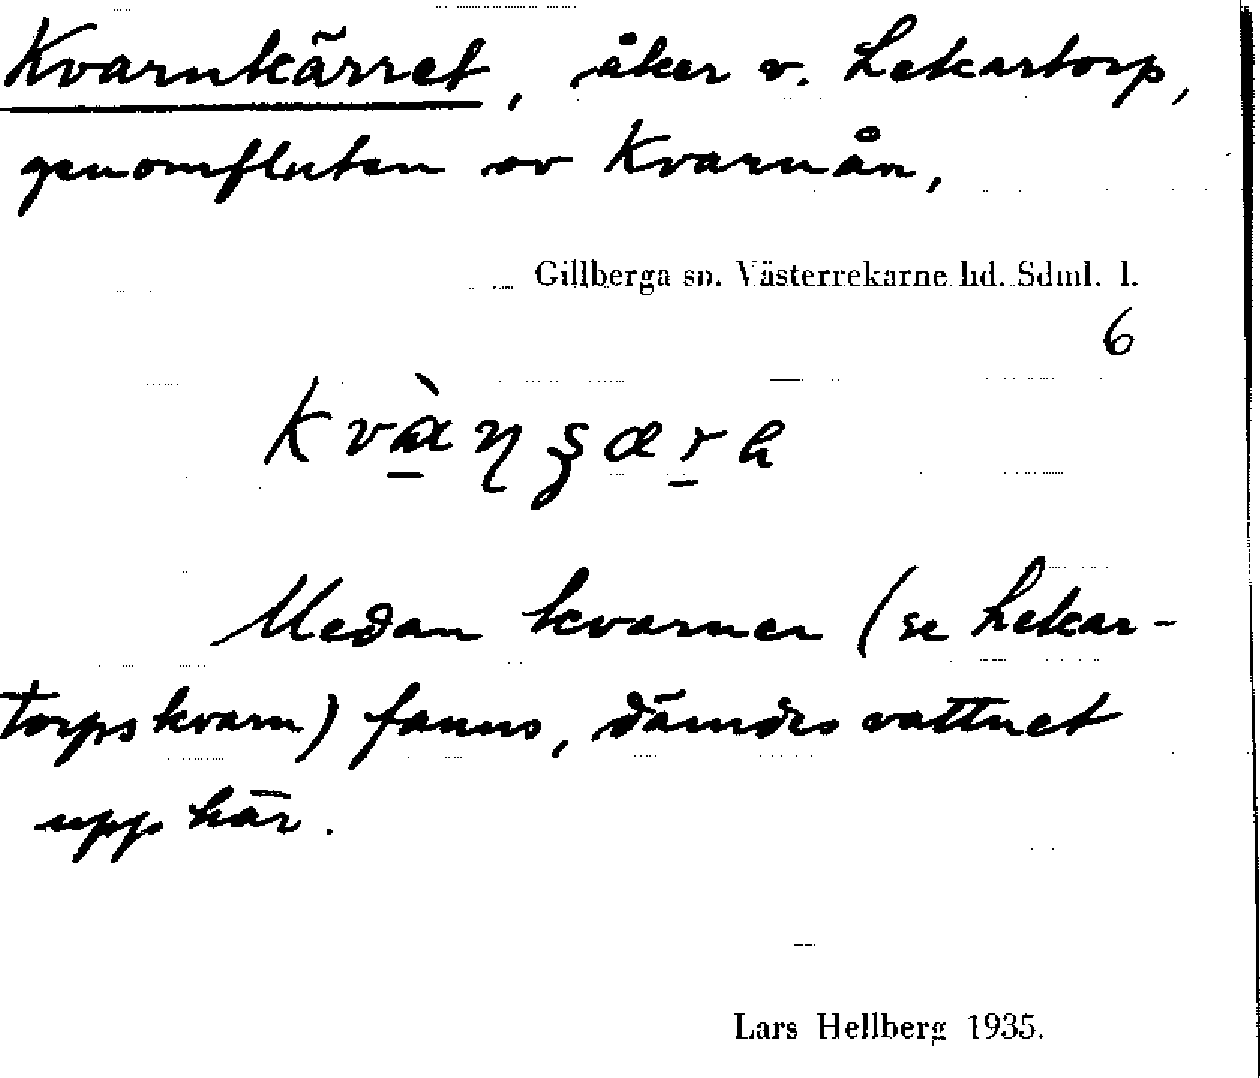 Kvarnkärret, åker v. Lekartorp,
genomfluten av Kvarnån,
Gillberga sn. Västerrekarne hd. Sdml. l.
6
Medan kvarnen (se Lekar-
torps kvarn) fanns, dämdes vattnet
upp här.
Lars Hellberg 1935.